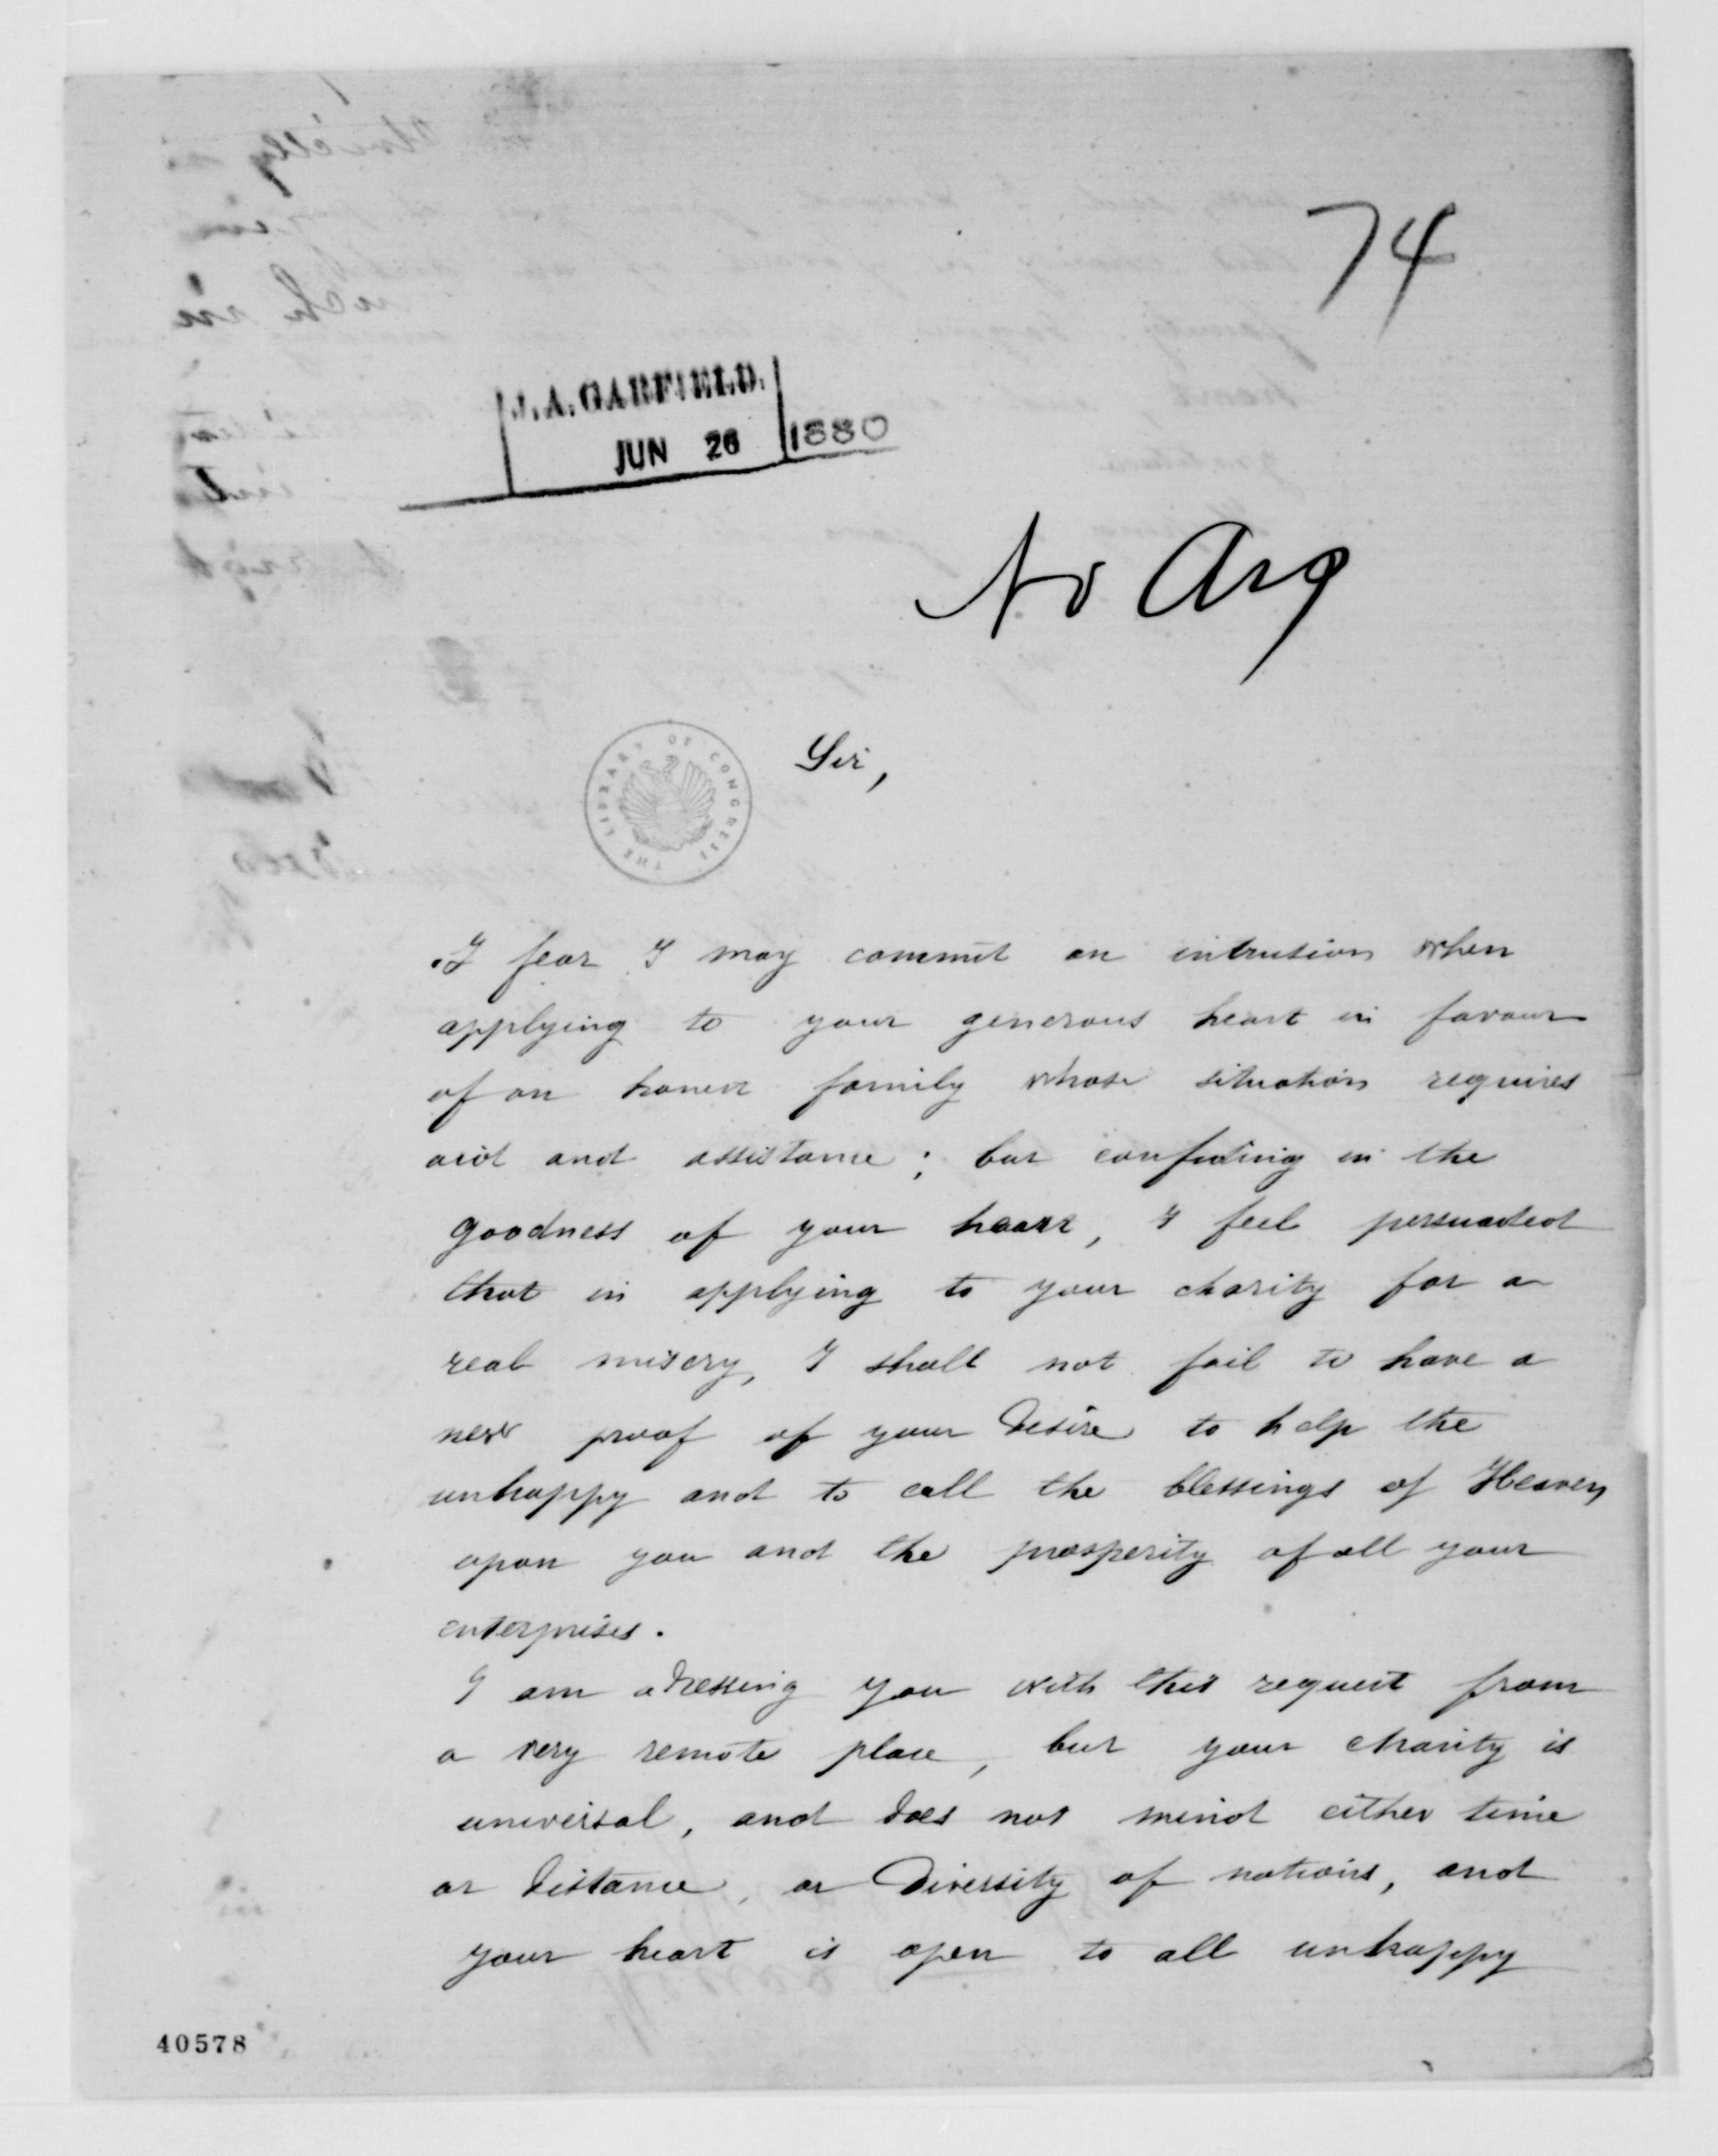 74
J.A. GARFIELD.
JUN 26 1880
No Arg
THE LIBRARY OF CONGRESS
Sir,
I fear I may commit an intrusion when
applying to your generous heart in favour
of an honest family whose situation requires
aid and assistance; but confiding in the
goodness of your heart, I feel persuaded
that in applying to your charity for a
real misery, I shall not fail to have a
new proof of your desire to help the
unhappy and to call the blessings of Heaven
upon you and the prosperity of all your
enterprises.
I am adressing you with this request from
a very remote place, but your charity is
universal, and does not mind either time
or distance, or diversity of nations, and
your heart is open to all unhappy
40578